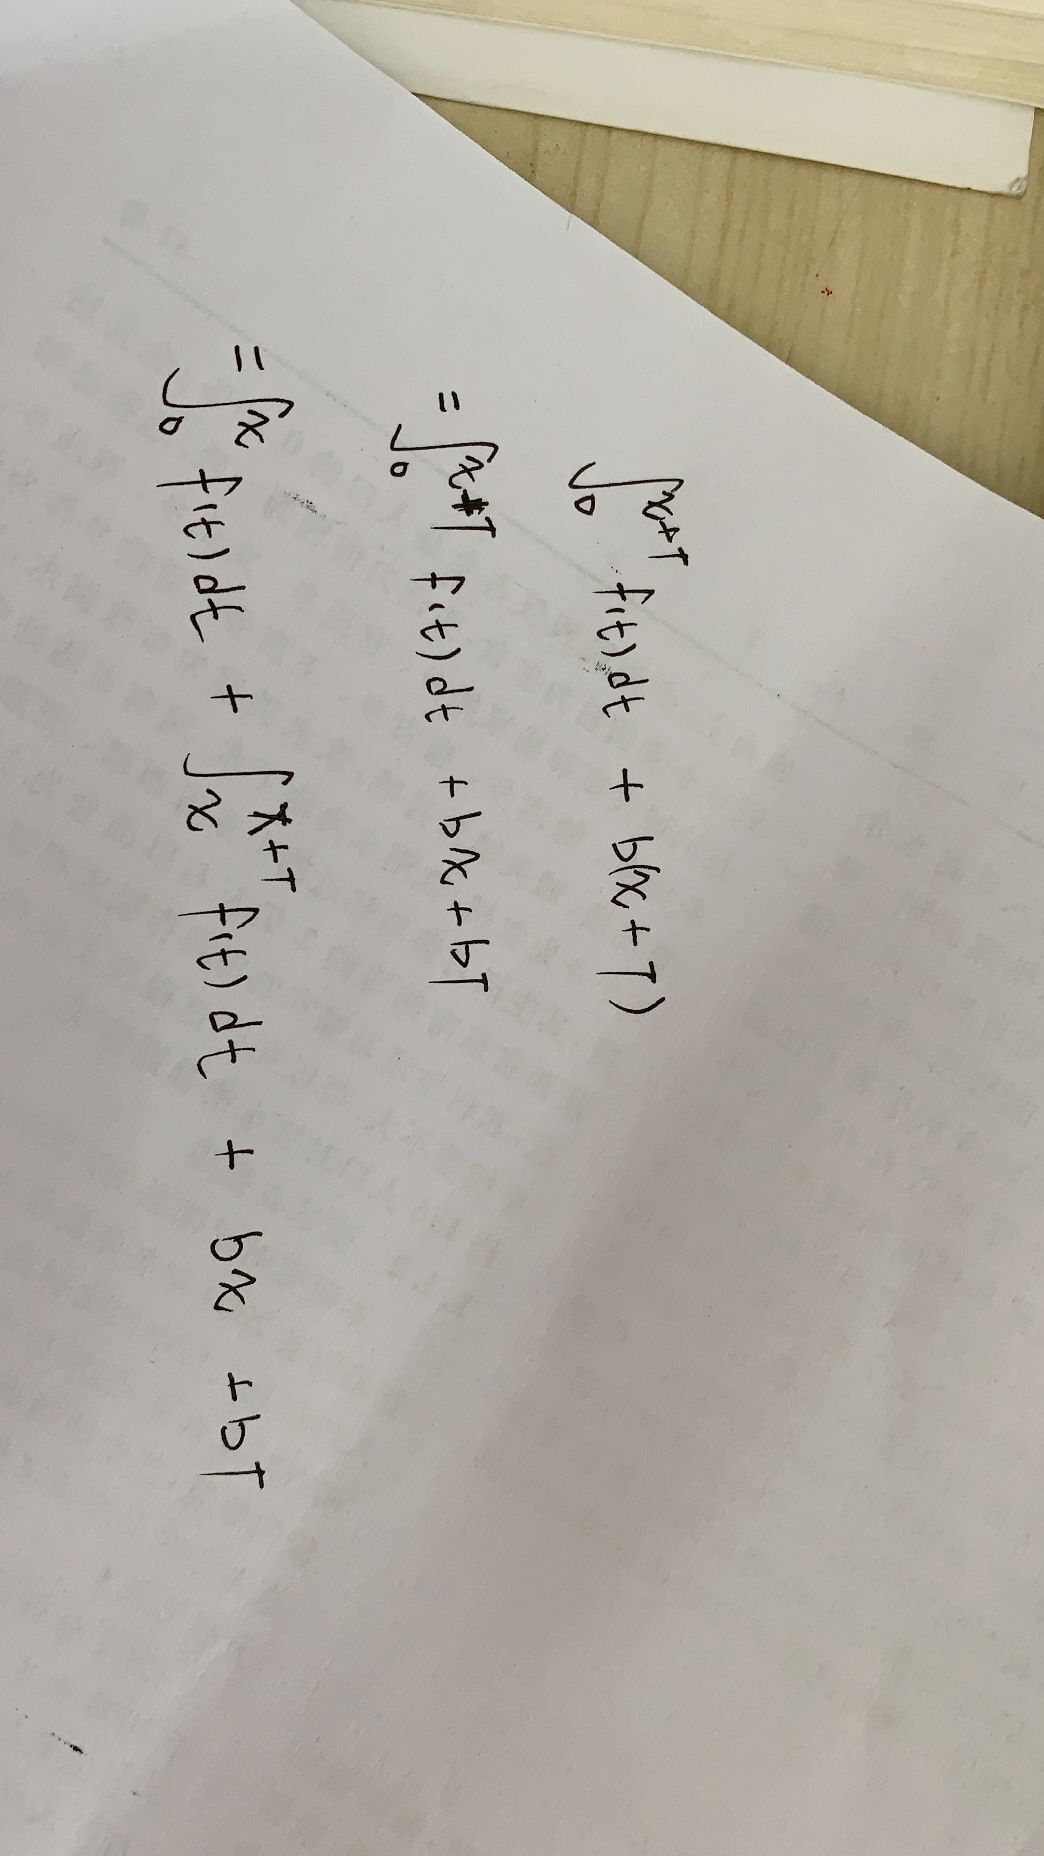 ∫₀^{x+T} f(t)dt + b(x+T)
= ∫₀^{x+T} f(t)dt + bx + bT
= ∫₀^{x} f(t)dt + ∫ₓ^{x+T} f(t)dt + bx + bT